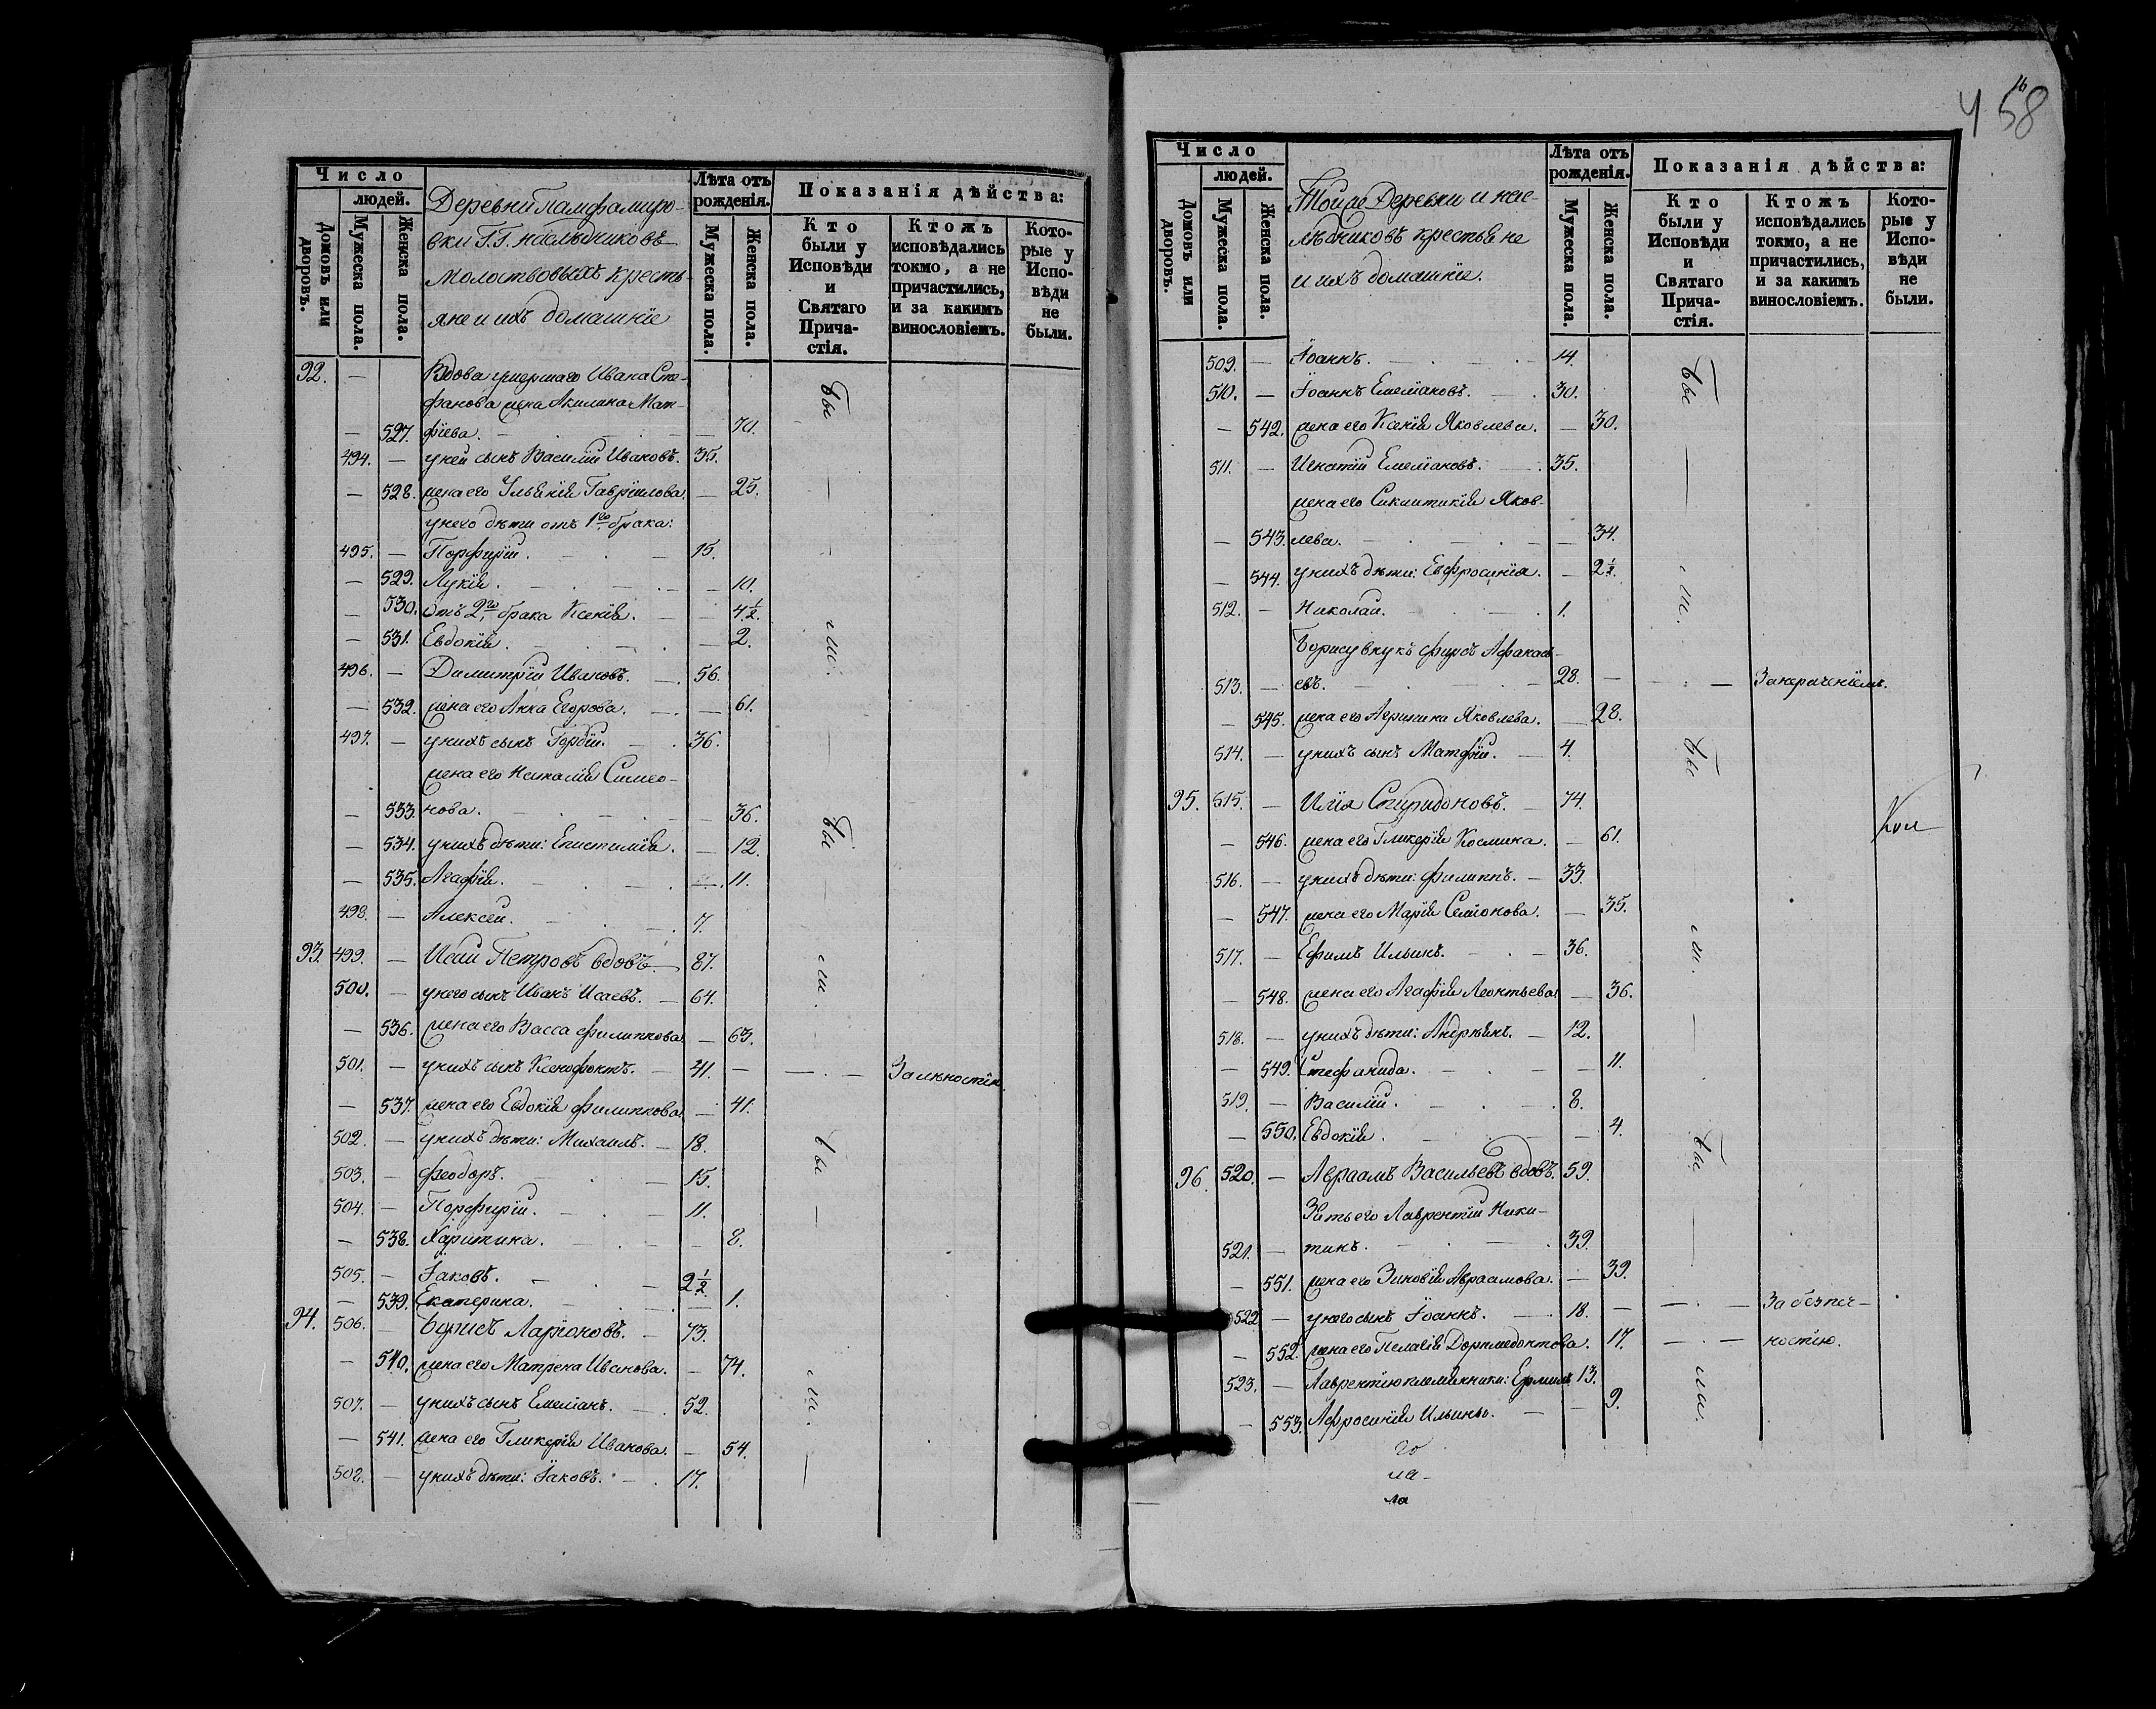 Число
людей.
Домовъ или дворовъ.
Мужеска пола.
Женска пола.
Деревни Памфамиро-
вки Г.Г. наслѣдниковъ
Молостовыхъ кресть-
яне и ихъ домашніе
Лѣта отъ рожденія.
Мужеска пола.
Женска пола.
Показанія дѣйства:
Кто были у Исповѣди и Святаго Прича-стія.
Ктожъ исповѣдались токмо, а не причастились, и за какимъ винословіемъ.
Кото-рые у Испо-вѣди не были.
92. — Вдова умершаго Ивана Сте-
фанова жена Акилина Мат-
— 527. фіева. — 70.
494. — у ней сынъ Василій Ивановъ. 35.
— 528. жена его Ульянія Гавріилова — 25.
у него дѣти отъ 1го брака:
495. — Порфирій. 15.
— 529. Лукія. — 10.
— 530. Отъ 2го брака Ксенія. — 4½.
— 531. Евдокія. — 2.
496. — Димитрій Ивановъ. 56.
— 532. жена его Анна Егорова. — 61.
497. — у нихъ сынъ Гордій. 36.
жена его Наталія Симео-
— 533. нова. — 36.
— 534. у нихъ дѣти: Епистимія. — 12.
— 535. Агафія. — 11.
498. — Алексѣй. 7.
93. 499. — Исай Петровъ вдовъ. 87.
500. — у него сынъ Иванъ Исаевъ. 64.
— 536. жена его Васса Филиппова — 63.
501. — у нихъ сынъ Ксенофонтъ. 41. — — За лѣностію.
— 537. жена его Евдокія Филиппова — 41.
502. — у нихъ дѣти: Михаилъ. 18.
503. — Феодоръ. 15.
504. — Порфирій. 11.
— 538. Харитина. — 8.
505. — Іаковъ. 2½.
— 539. Екатерина. — 1.
94. 506. — Борисъ Ларіоновъ. 73.
— 540. жена его Матрена Иванова. — 74.
507. — у нихъ сынъ Емеліанъ. 52.
— 541. жена его Гликерія Иванова. — 54.
508. — у нихъ дѣти: Іаковъ. 17.
бы
—
ли.
—
бы
—
ли.
—
бы
—
ли.
—
58
Число
людей.
Домовъ или дворовъ.
Мужеска пола.
Женска пола.
Той же Деревни и нас-
лѣдниковъ крестьяне
и ихъ домашніе.
Лѣта отъ рожденія.
Мужеска пола.
Женска пола.
Показанія дѣйства:
Кто были у Исповѣди и Святаго Прича-стія.
Ктожъ исповѣдались токмо, а не причастились, и за какимъ винословіемъ.
Кото-рые у Испо-вѣди не были.
509. — Іоаннъ. 14.
510. — Іоаннъ Емеліановъ. 30.
— 542. жена его Ксенія Яковлева. — 30.
511. — Игнатій Емеліановъ. 35.
жена его Синклитикія Яков-
— 543. лева. — 34.
— 544. у нихъ дѣти: Евфросинія. — 2½.
512. — Николай. 1.
Борису внукъ Фирсъ Афанась-
513. — евъ. 28. — — За нераченіемъ.
— 545. жена его Агрипина Яковлева. — 28.
514. — у нихъ сынъ Матфій. 4.
95. 515. — Илія Спиридоновъ. 74.
— 546. жена его Гликерія Космина. — 61.
516. — у нихъ дѣти: Филиппъ. 33.
— 547. жена его Марія Семіонова. — 35.
517. — Ефимъ Ильинъ. 36.
— 548. жена его Агафія Леонтьева — 36.
518. — у нихъ дѣти: Андреянъ. 12.
— 549. Стефанида. — 11.
519. — Василій. 8.
— 550. Евдокія. — 4.
96. 520. — Авраамъ Васильевъ вдовъ. 59.
Зять его Лаврентій Ники-
521. — тинъ. 39.
— 551. жена его Зиновія Авраамова. — 39.
522. — у него сынъ Іоаннъ. 18. — — За безпеч-
— 552. жена его Пелагія Доримедонтова. 17. — — ностію.
523. — Лаврентію племянники: Ермилъ 13.
— 553. Афросинія Ильины. — 9.
бы
—
ли.
бы
—
ли.
—
бы
—
ли.
го
ла